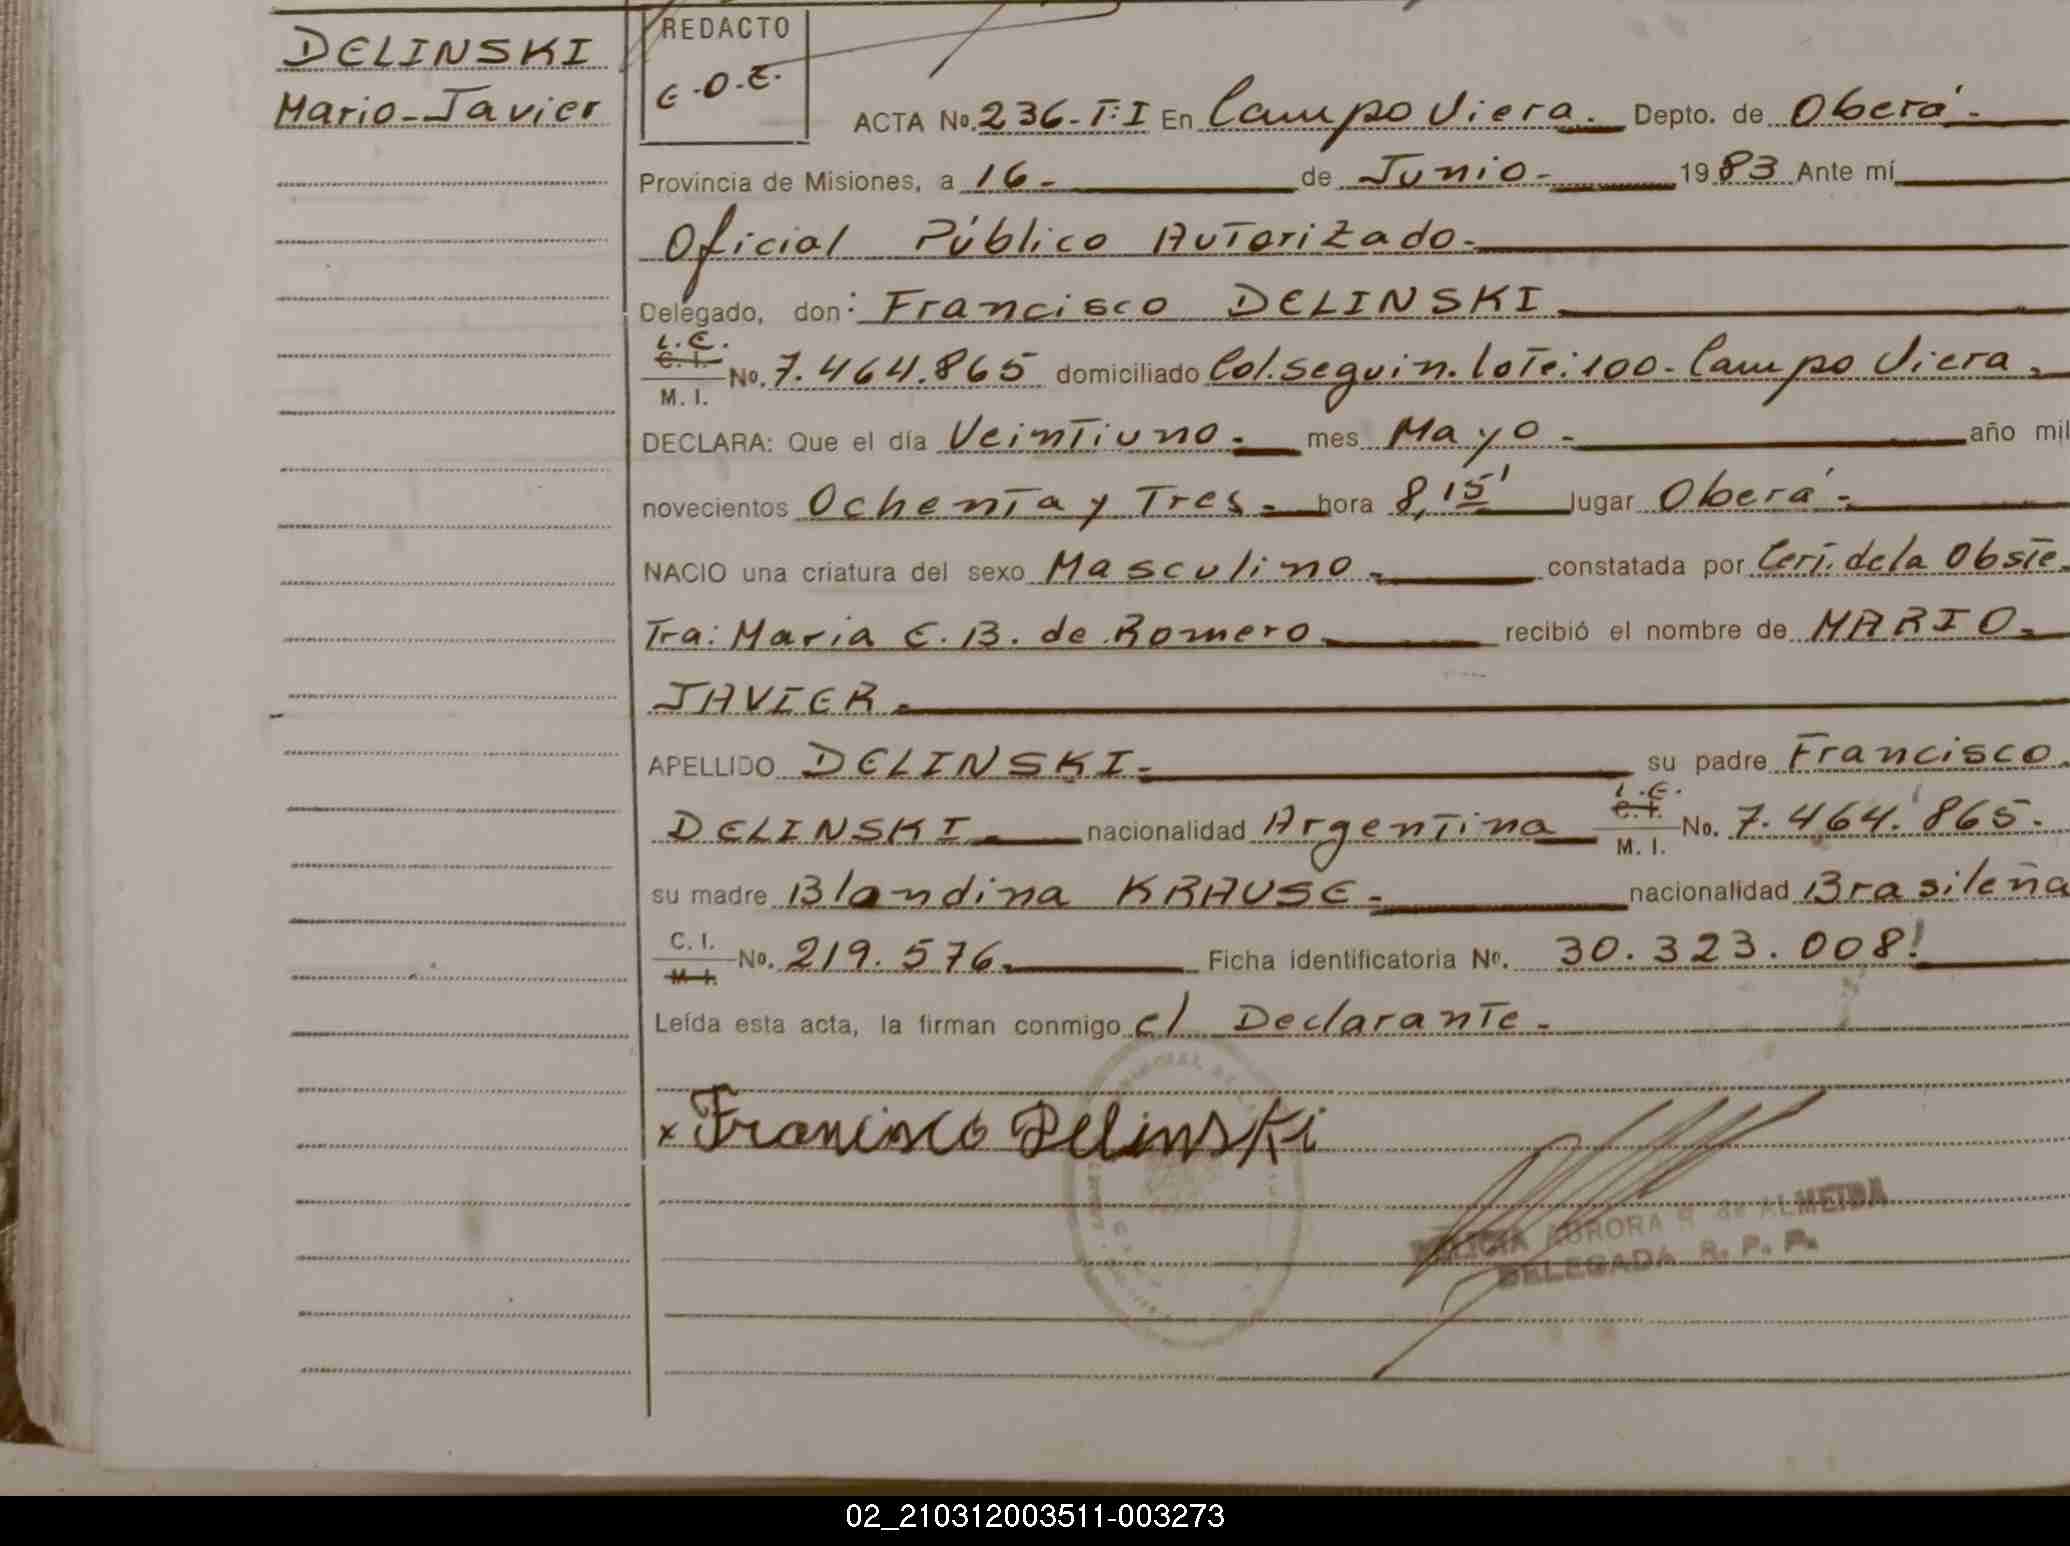 DELINSKI
Mario-Javier
REDACTO
E.O.E.
ACTA No. 236-T:I En Campo Viera. Depto. de Oberá-
Provincia de Misiones, a 16- de Junio- 1983 Ante mí
Oficial Público Autorizado-
Delegado, don: Francisco DELINSKI
L.E.
C. I.
M. I.
No. 7.464.865 domiciliado Col. Seguin. lote: 100- Campo Viera.
DECLARA: Que el día Veintiuno- mes Mayo- año mil
novecientos Ochenta y Tres- hora 8,15' lugar Oberá-
NACIO una criatura del sexo Masculino- constatada por Cert. dela Obste-
Tra: Maria E. B. de Romero recibió el nombre de MARIO-
JAVIER-
APELLIDO DELINSKI- su padre Francisco
L.E.
C. I.
DELINSKI- nacionalidad Argentina M. I. No. 7.464.865.
su madre Blandina KRAUSE- nacionalidad Brasileña
C. I.
M. I.
No. 219.576. Ficha identificatoria No. 30.323.008!
Leída esta acta, la firman conmigo el Declarante-
x Francisco Delinski
AURORA de ALMEIDA
DELEGADA R. P. P.
02_210312003511-003273